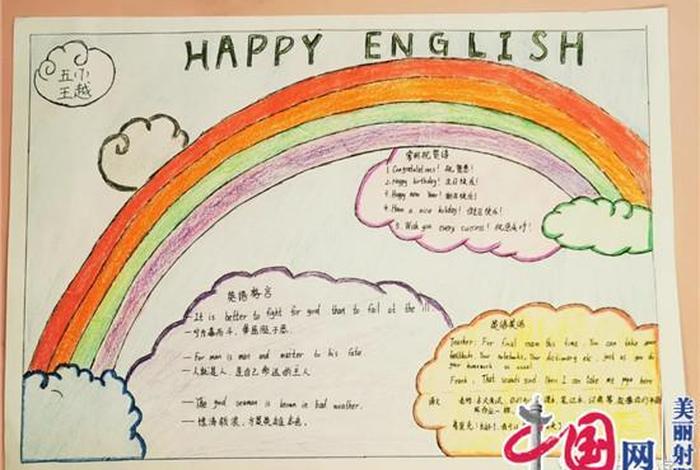 HAPPY ENGLISH
五小
王越
常用祝贺语
1. Congratulations! 祝贺您!
2. Happy birthday! 生日快乐!
Happy new Year! 新年快乐!
4. Have a nice holiday! 快乐!
5. Wish you every success! 祝您成功!
英语格言
It is better to fight for good than to fail at the ill
宁为善而斗,毋屈服于恶.
For man is man and master to his fate
人就是人,是自己命运的主人
The good seaman is known in bad weather.
惊涛骇浪,方显英雄本色.
英语笑话
Teacher: For final exam this time. You can take your
textbooks, Your notebooks, Your dictionary etc, just as you do
your homework as usual
Frank: That sounds good, then I can take my papa here
中国网
美丽射